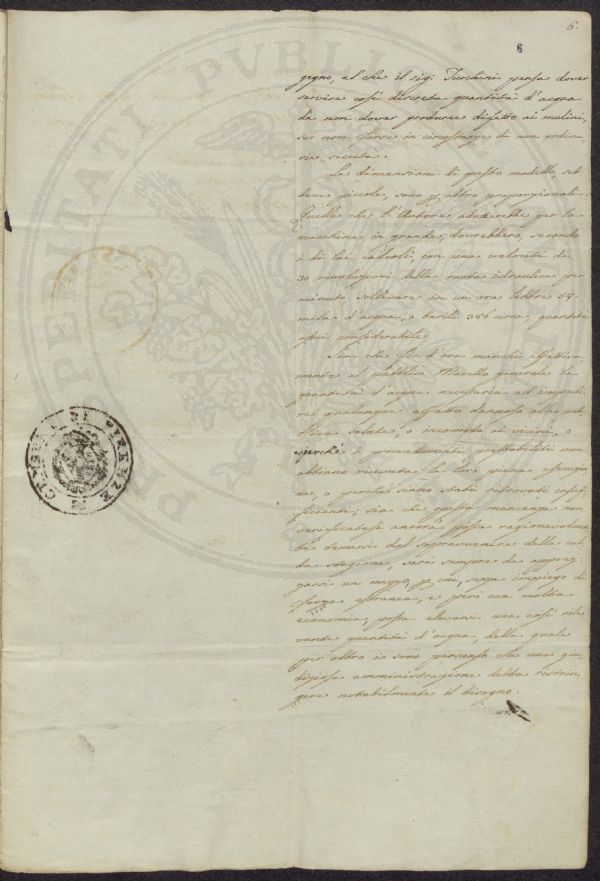 6.
6
gegno, al che il sig. Turchini pensa dover
servire così discreta quantità d'acqua
da non dover produrre difetto ai mulini,
se non forse in circostanze di non ordina-
ria siccità.
Le dimensioni di questo modello, seb-
bene piccole, sono p altro proporzionali.
Quelle che l'Autore adotterebbe per la
macchina in grande, dovrebbero, secondo
i di lui calcoli, con una velocità di
30 rivoluzioni della ruota idraulica per
minuto sollevare in un ora libbre 54
mila d'acqua, o barili 386 circa, quantità
assai considerabile.
Sia che fin d'ora manchi effettiva-
mente al pubblico Macello generale la
quantità d'acqua necessaria ad impedi-
re qualunque effetto dannoso alla pub-
blica salute, o incomodo ai vicini, o
perchè i provvedimenti prestabiliti non
abbiano ricevuta la loro piena esecuzio-
ne, o perchè siano stati ritrovati insuf-
ficienti; sia che questa mancanza non
verificatasi ancora possa ragionevolmen-
te temersi dal sopravvenire della cal-
da stagione, sarà sempre da apprez-
zarsi un mezzo, p cui, senza impiego di
forza estranea, e però con molta
economia, possa elevarsi una così rile-
vante quantità d'acqua, della quale
per altro io sono persuaso che una giu-
diziosa amministrazione debba restrin-
gere notabilmente il bisogno.
DI FIRENZE
PROSPERITATI PUBLI